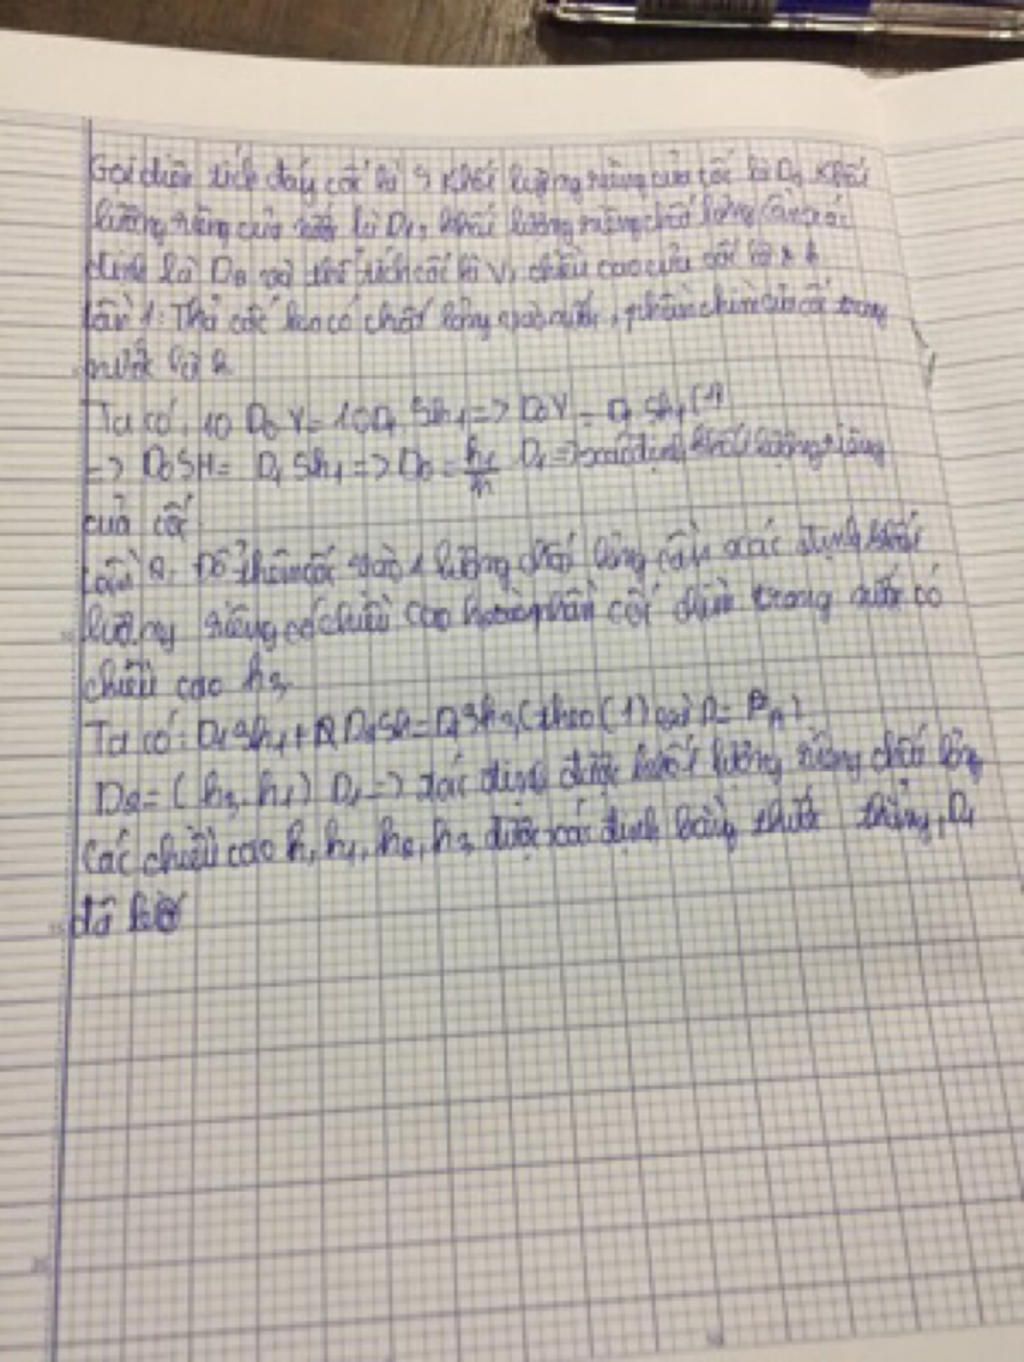 Gọi diện tích đáy cốc là S khối lượng riêng của cốc là D0, Khối
lượng riêng của nước là D1, khối lượng riêng chất lỏng cần xác
định là D2 và thể tích cốc là V, chiều cao của cốc là h
Lần 1: Thả cốc không có chất lỏng vào nước, phần chìm của cốc trong
nước là h
Ta có: 10 D0 V = 10D1 Sh1 => D0V = D1 Sh1 (1)
=> D0SH = D1 Sh1 => D0 = h1/h D1 => xác định khối lượng riêng
của cốc
Lần 2: Đổ thêm cốc vào 1 lượng chất lỏng cần xác định khối
lượng riêng có chiều cao phần cốc chìm trong nước có
chiều cao h3
Ta có: D1Sh1 + D2Sh = D1Sh3 (theo (1) và
D2 = (h3 - h1) D1 => xác định được khối lượng riêng chất lỏng
Các chiều cao h, h1, h2, h3 được xác định bằng thước thẳng, D1
đã biết